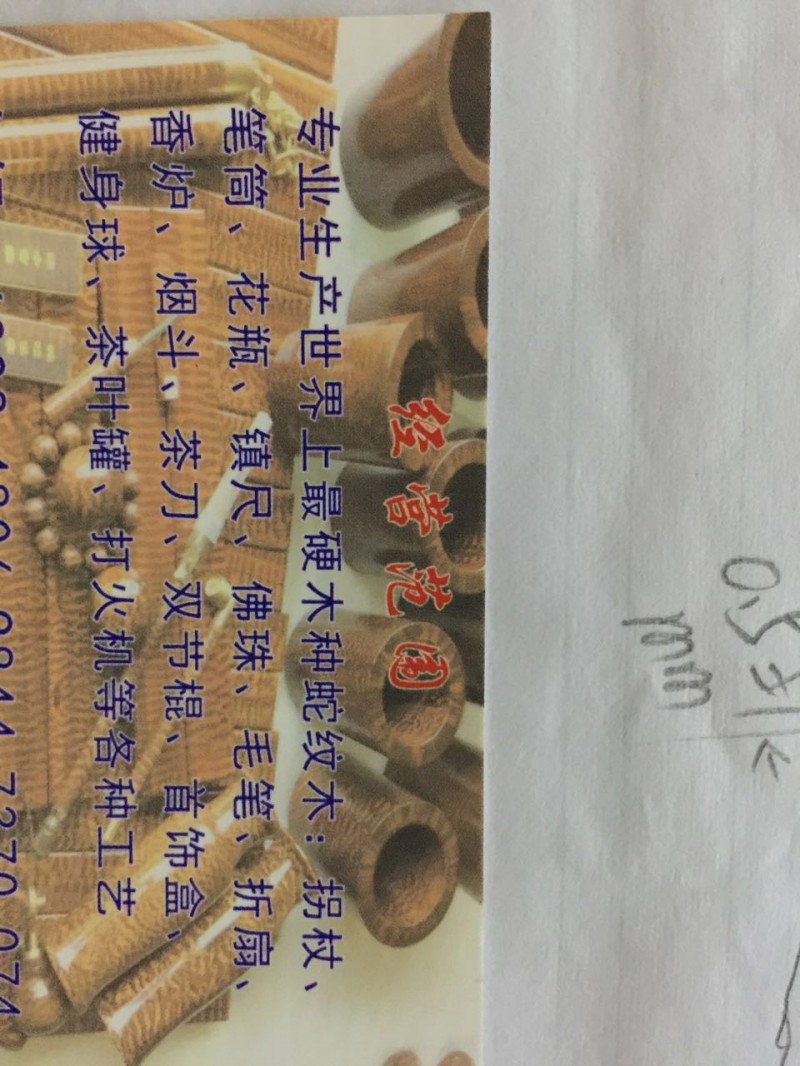 经营范围
专业生产世界上最硬木种蛇纹木：拐杖、
笔筒、花瓶、镇尺、佛珠、毛笔、折扇、
香炉、烟斗、茶刀、双节棍、首饰盒、
健身球、茶叶罐、打火机等各种工艺
mm